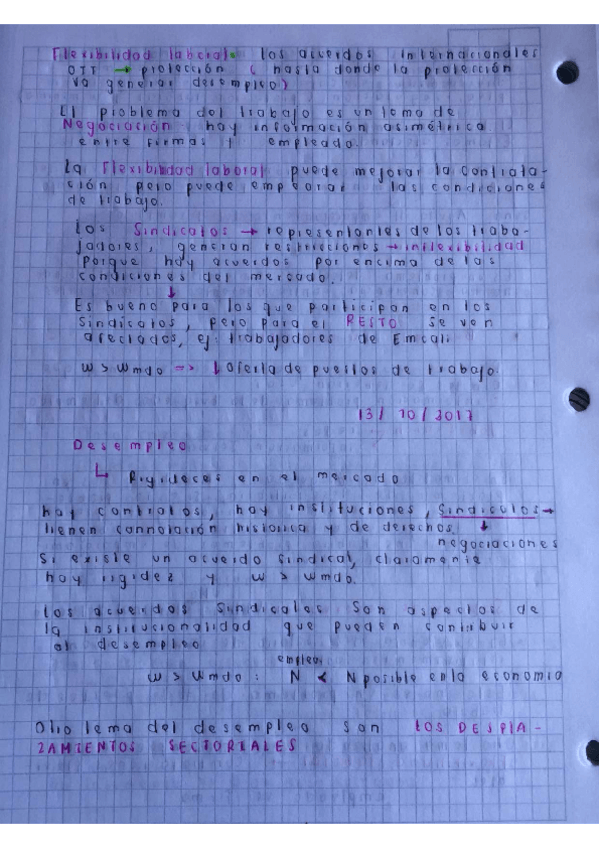 Flexibilidad laboral: los acuerdos internacionales
OIT → protección ( hasta donde la protección
va generar desempleo)
El problema del trabajo es un tema de
Negociación hay información asimétrica
entre firmas y empleado.
La Flexibilidad laboral puede mejorar la contrata-
ción pero puede empeorar las condiciones
de trabajo.
Los Sindicatos → representantes de los traba-
jadores, generan restricciones → inflexibilidad
porque hay acuerdos por encima de las
condiciones del mercado.
↓
Es bueno para los que participan en los
Sindicatos, pero para el RESTO se ven
afectados, ej: trabajadores de Emcali
w > wmdo => ↓ oferta de puestos de trabajo.
13/ 10 / 2017
Desempleo
↳ Rigideces en el mercado
hay contratos, hay instituciones, Sindicatos →
tienen connotación historica y de derechos ↓
negociaciones
Si existe un acuerdo sindical, claramente
hay rigidez y w > wmdo.
Los acuerdos Sindicales Son aspectos de
la institucionalidad que pueden contribuir
al desempleo
empleo
w > wmdo : N < N posible en la economia
Otro tema del desempleo son LOS DESPLA-
ZAMIENTOS SECTORIALES